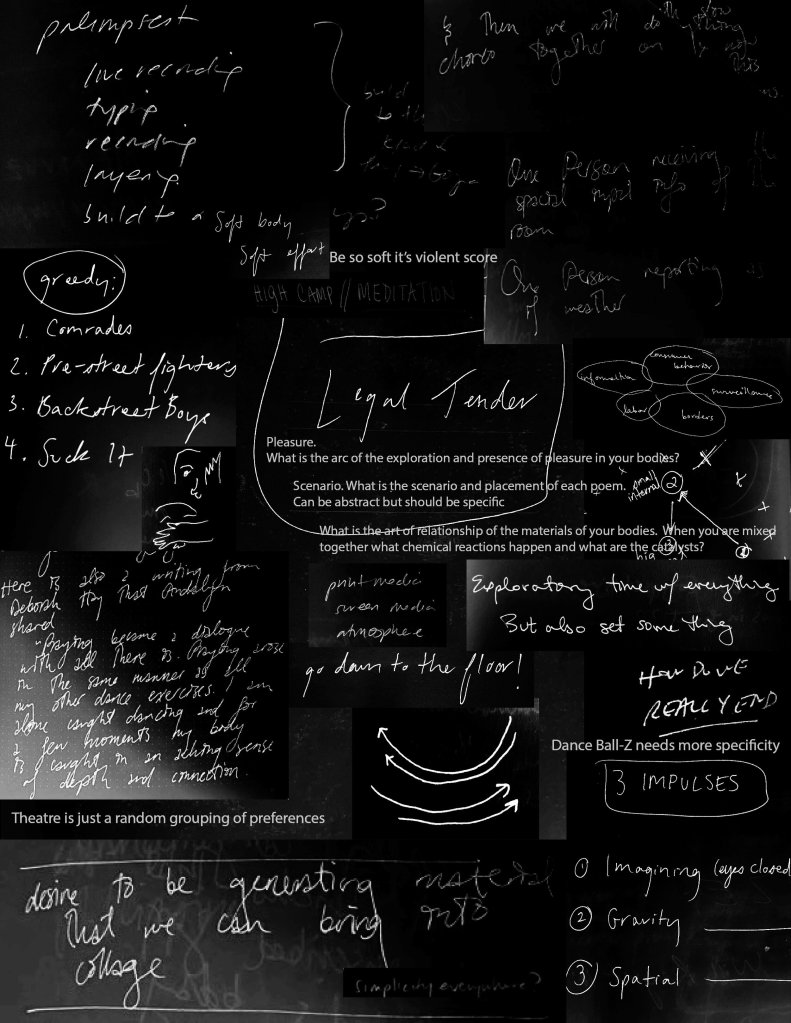 palimpsest
live recording
typing
recording
layering
build to a
soft body
soft effort
& Then we will do
choreo together
One Person receiving the
special info of the
room
Be so soft it's violent score
One Person reporting
of weather
HIGH CAMP // MEDITATION
greedy:
1. Comrades
2. Pre-street fighters
3. Backstreet Boys
4. Suck It
Legal Tender
consumer
behavior
information
surveillance
labor
borders
Pleasure.
What is the arc of the exploration and presence of pleasure in your bodies?
Scenario. What is the scenario and placement of each poem.
Can be abstract but should be specific
small
internal
2
What is the art of relationship of the materials of your bodies. When you are mixed
together what chemical reactions happen and what are the catalysts?
Here is also a writing from
Deborah Hay that
shared
"Praying became a dialogue
with all There is. Praying arose
in The same manner as all
my other dance exercises. I am
alone caught dancing and for
a few moments my body
is caught in an aching sense
of depth and connection
print media
screen media
atmosphere
Exploratory time w/ everything
But also set some thing
go down to the floor!
HOW DO WE
REALLY END
Dance Ball-Z needs more specificity
3 IMPULSES
Theatre is just a random grouping of preferences
desire to be generating material
That we can bring into
collage
simplicity everywhere?
1 Imagining (eyes closed
2 Gravity
3 Spatial